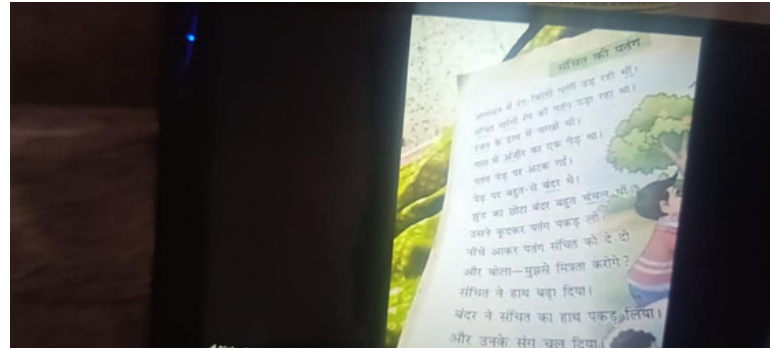 संचित की पतंग
आसमान में रंग-बिरंगी पतंगें उड़ रही थीं।
संचित नारंगी रंग की पतंग उड़ा रहा था।
के हाथ में चरखी थी।
पास में अंजीर का एक पेड़ था।
पतंग पेड़ पर अटक गई।
पेड़ पर बहुत-से बंदर थे।
झुंड का छोटा बंदर बहुत चंचल था।
उसने कूदकर पतंग पकड़ ली।
नीचे आकर पतंग संचित को दे दी
और बोला—मुझसे मित्रता करोगे?
संचित ने हाथ बढ़ा दिया।
बंदर ने संचित का हाथ पकड़ लिया।
और उनके संग चल दिया।